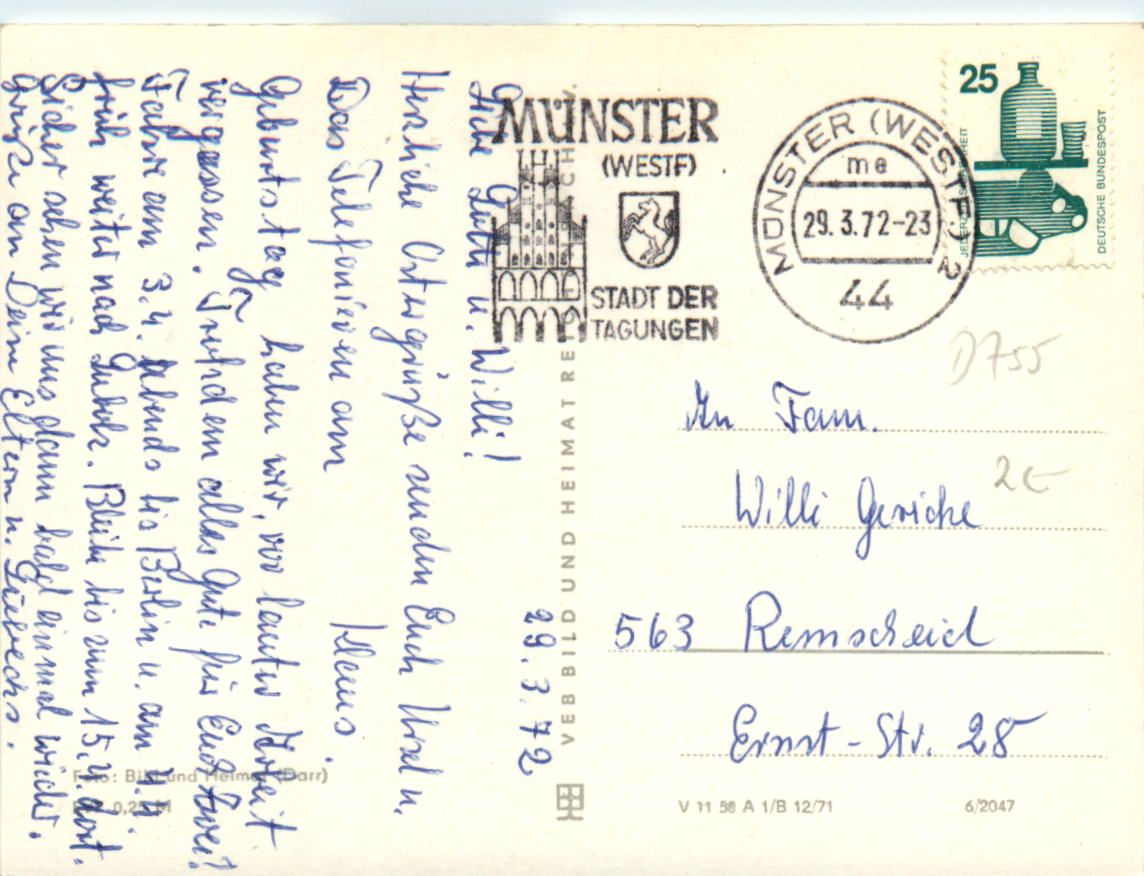 29.3.72
Liebe Gitti u. Willi!
Herzliche Ostergrüße senden Euch Ursel u.
Klaus.
Das Telefonieren am
Geburtstag haben wir, vor lauter Arbeit
vergessen. Trotzdem alles Gute für Euch Zwei!
Fahre am 3.4. Abends bis Berlin u. am 4.4.
früh weiter nach . Bleibe bis zum 15.4. dort.
Sicher sehen wir uns dann bald einmal wieder.
Grüße an Deine Eltern u.
MÜNSTER
(WESTF)
STADT DER
TAGUNGEN
MÜNSTER (WESTF.) 2
me
29.3.72-23
44
25
JEDERZEIT SICHERHEIT
DEUTSCHE BUNDESPOST
D755
2€
An Fam.
Willi Gericke
563 Remscheid
Ernst-Str. 28
VEB BILD UND HEIMAT REICHENBACH
Foto: Bild und Heimat (Darr)
0,25 M
V 11 50 A 1/B 12/71
6/2047